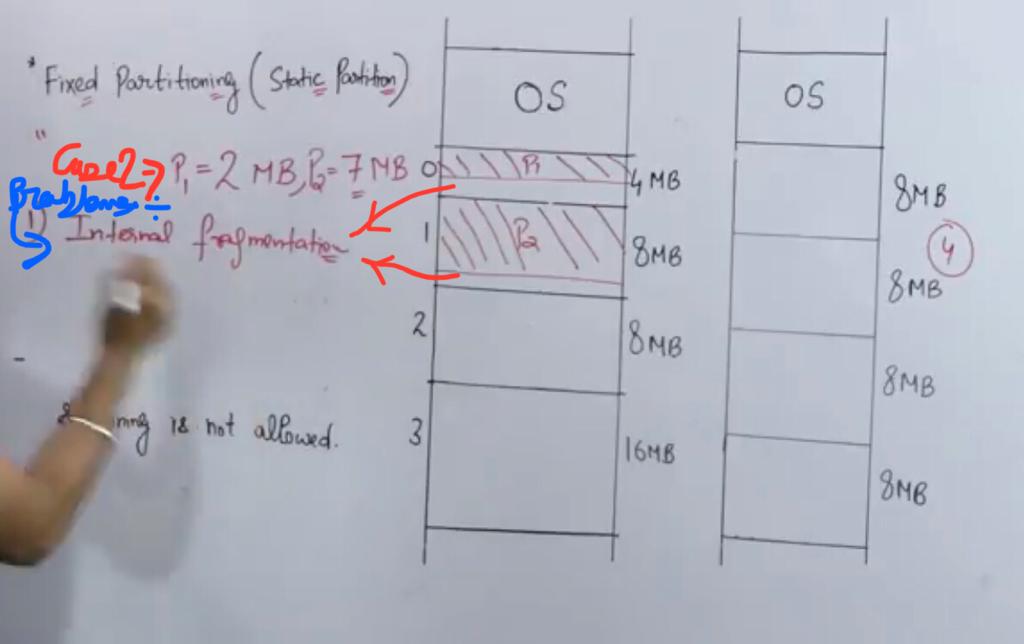 * Fixed Partitioning (Static Partition)
"
Case 2 → P1 = 2 MB, P2 = 7 MB
Problems :-
1) Internal fragmentation
-
is not allowed.
OS
0 P1 4 MB
1 P2 8MB
2 8MB
3 16MB
OS
8MB
4
8MB
8MB
8MB